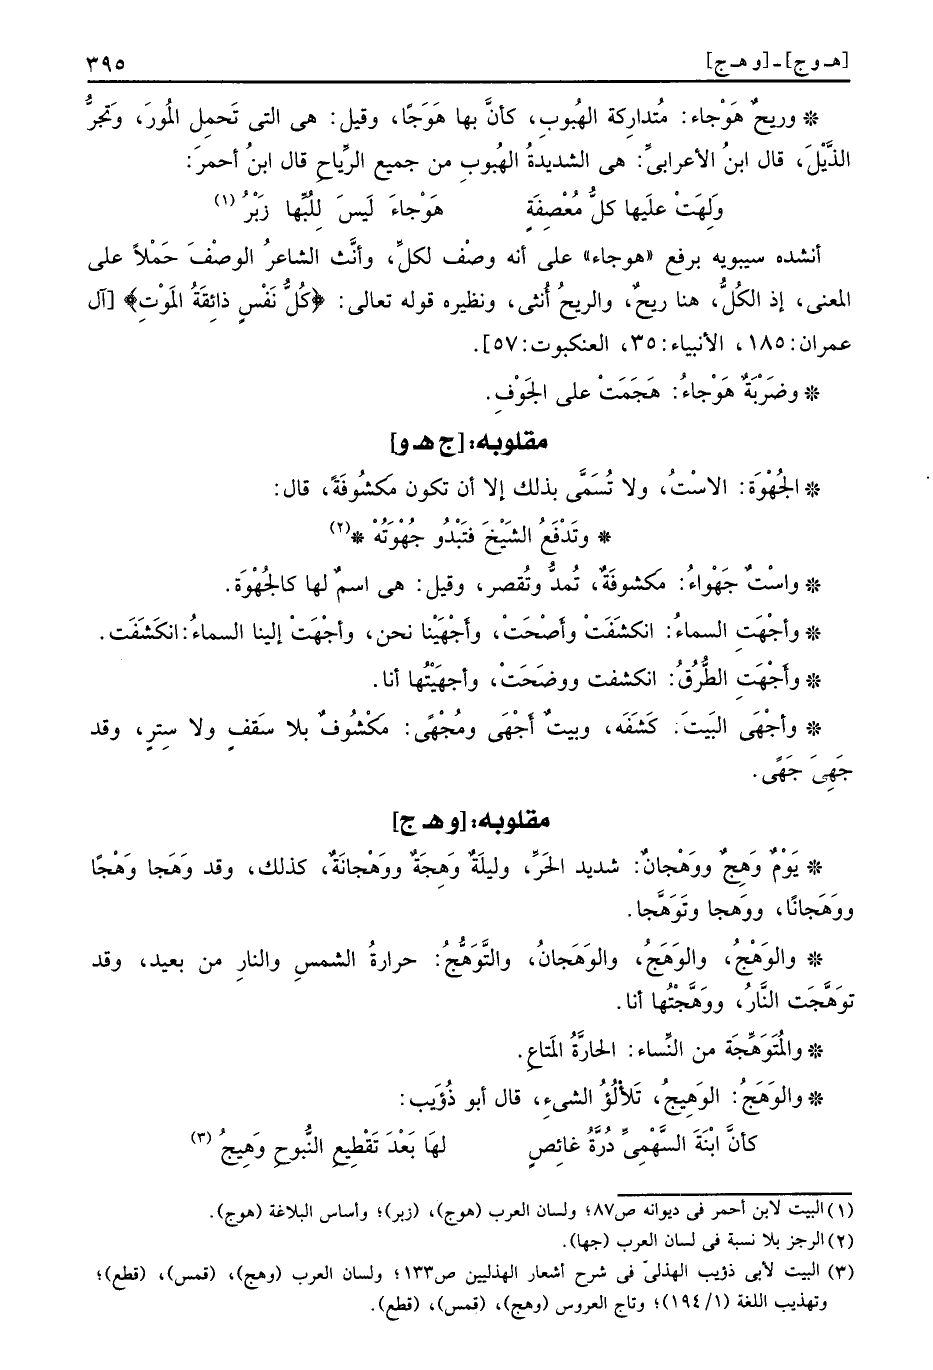 [هـ و ج] ـ [و هـ ج] ٣٩٥
* وريحٌ هَوْجاء: مُتداركة الهُبوبِ، كأنَّ بها هَوَجًا، وقيل: هى التى تَحمِل المُورَ، وَتجرُّ
الذَّيْلَ، قال ابنُ الأعرابىِّ: هى الشديدةُ الهُبوبِ من جميع الرِّياحِ قال ابنُ أحمرَ:
وَلِهَتْ علَيها كلُّ مُعْصِفَةٍ هَوْجاءَ لَيسَ لِلُبِّها زَبْرُ (١)
أنشده سيبويه برفع «هوجاء» على أنه وصْف لكلِّ، وأنَّث الشاعرُ الوصْفَ حَمْلاً على
المعنى، إذ الكُلُّ، هنا ريحٌ، والريحُ أُنثى، ونظيره قوله تعالى: ﴿كُلُّ نَفْسٍ ذائقَةُ المَوْتِ﴾ [آل
عمران: ١٨٥، الأنبياء: ٣٥، العنكبوت: ٥٧].
* وضَرْبَةٌ هَوْجاءُ: هَجَمَتْ على الجَوْفِ.
مقلوبه: [ج هـ و]
* الجُهْوَة: الاسْتُ، ولا تُسَمَّى بذلك إلا أن تكون مَكشُوفَةً، قال:
* وتَدْفَعُ الشَيْخَ فتَبْدُو جُهْوَتُهْ *(٢)
* واسْتٌ جَهْواءُ: مَكشوفَةٌ، تُمدُّ وتُقصر، وقيل: هى اسمٌ لها كالجُهْوَة.
* وأجْهَتِ السماءُ: انكشَفَتْ وأَصْحَتْ، وأَجْهَيْنا نحن، وأجْهَتْ إلينا السماءُ: انكَشَفَت.
* وأَجْهَتِ الطُّرُقُ: انكشفت ووضَحَتْ، وأجهَيْتُها أنا.
* وأجْهَى البَيتَ: كَشَفَه، وبيتٌ أَجْهَى ومُجْهًى: مَكْشُوفٌ بلا سَقفٍ ولا سِترٍ، وقد
جَهِىَ جَهًى.
مقلوبه: [و هـ ج]
* يَوْمٌ وَهِجٌ ووَهْجانٌ: شديد الحَرِّ، وليلَةٌ وَهِجَةٌ ووَهْجانَةٌ، كذلك، وقد وَهَجا وهْجًا
ووَهَجانًا، ووَهجا وتَوَهَّجا.
* والوَهْجُ، والوَهَجُ، والوَهَجانُ، والتَّوَهُّجُ: حرارةُ الشمسِ والنارِ من بعيد، وقد
توَهَّجَت النَّارُ، ووَهَّجْتُها أنا.
* والمُتَوَهِّجَة من النِّساء: الحارَّةُ المَتاعِ.
* والوَهَجُ: الوَهِيجُ، تَلأْلُؤُ الشىءِ، قال أبو ذُؤَيب:
كأنَّ ابْنَةَ السَّهْمِىِّ دُرَّةُ غائصٍ لهَا بَعْدَ تَقْطِيعِ النُّبوحِ وَهِيجُ (٣)
(١) البيت لابن أحمر فى ديوانه ص٨٧؛ ولسان العرب (هوج)، (زبر)؛ وأساس البلاغة (هوج).
(٢) الرجز بلا نسبة فى لسان العرب (جها).
(٣) البيت لأبى ذؤيب الهذلىّ فى شرح أشعار الهذليين ص١٣٣؛ ولسان العرب (وهج)، (قمس)، (قطع)؛
وتهذيب اللغة (١/ ١٩٤)؛ وتاج العروس (وهج)، (قمس)، (قطع).